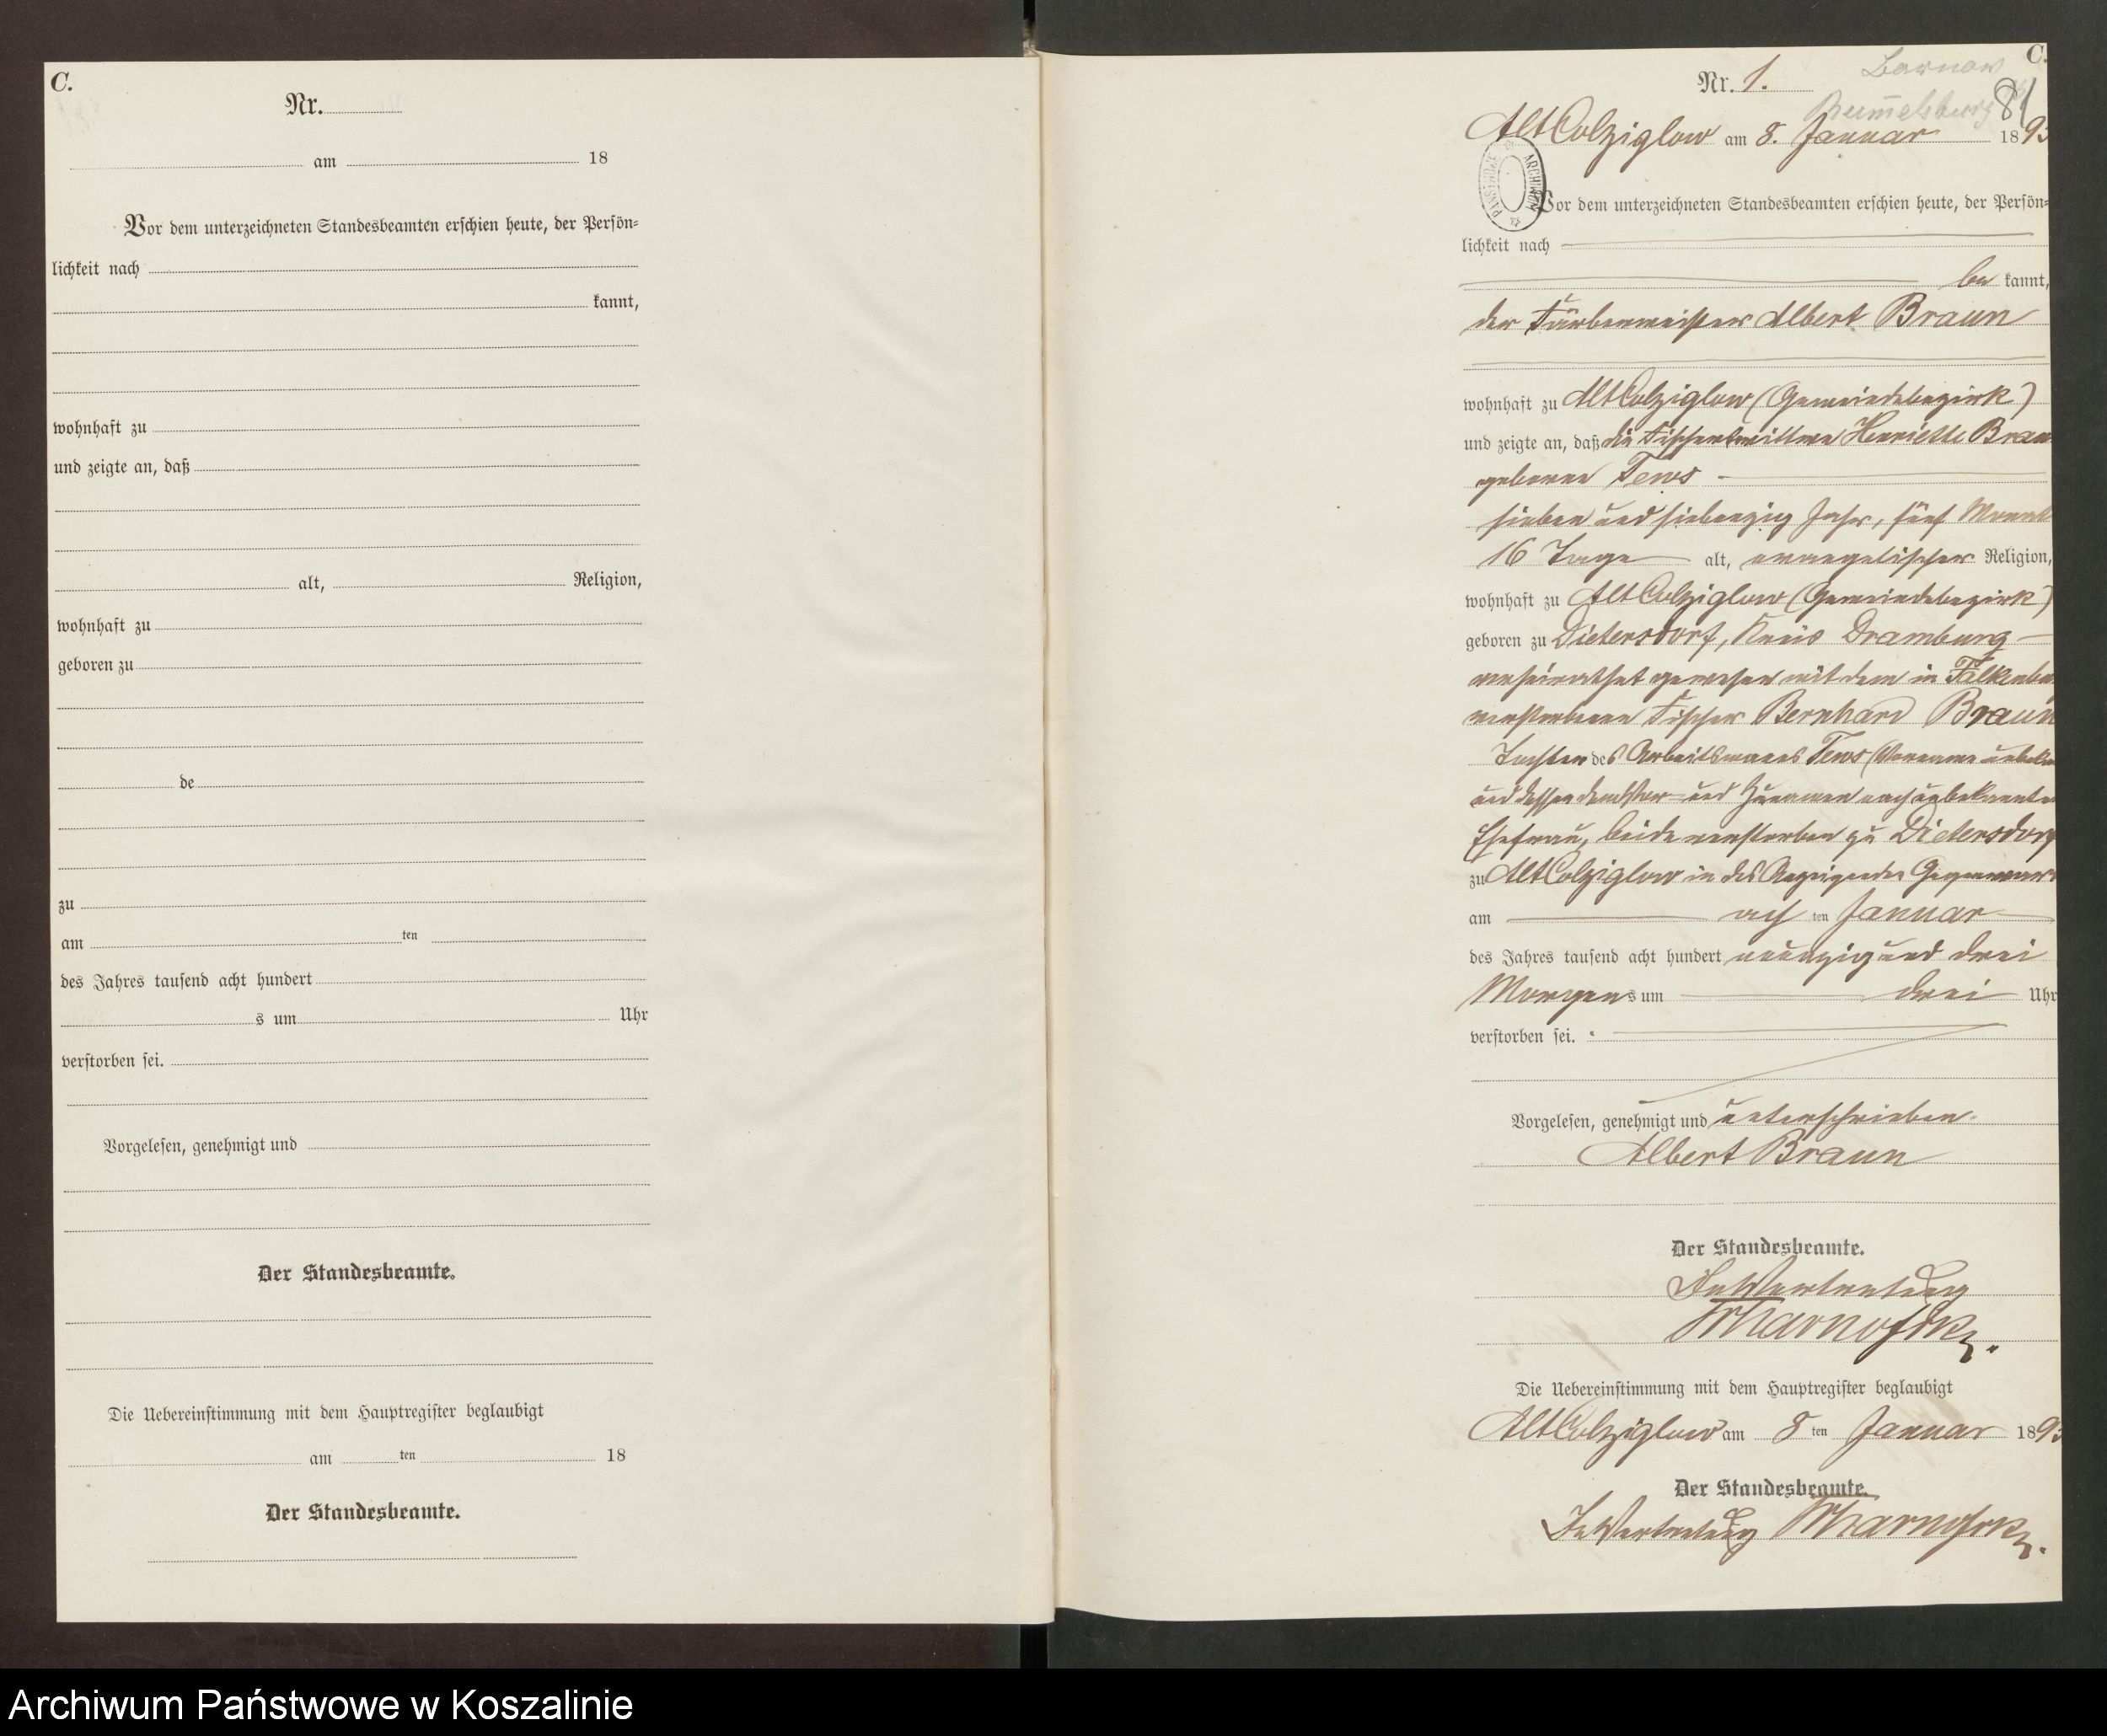 C.
Nr.
am 18
Vor dem unterzeichneten Standesbeamten erschien heute, der Persön=
lichkeit nach
kannt,
wohnhaft zu
und zeigte an, daß
alt, Religion,
wohnhaft zu
geboren zu
de
zu
am ten
des Jahres tausend acht hundert
s um Uhr
verstorben sei.
Vorgelesen, genehmigt und
Der Standesbeamte.
Die Uebereinstimmung mit dem Hauptregister beglaubigt
am ten 18
Der Standesbeamte.
C.
Barnow
Nr. 1.
Rummelsburg 81
Alt Colziglow am 8. Januar 1893
Vor dem unterzeichneten Standesbeamten erschien heute, der Persön=
lichkeit nach
be kannt,
der Färbermeister Albert Braun
wohnhaft zu Alt Colziglow (Gemeindebezirk)
und zeigte an, daß die Fischerwittwe Henriette Braun
geborene Tews
sieben und siebenzig Jahr, fünf Monat
16 Tage alt, evangelischer Religion,
wohnhaft zu Alt Colziglow (Gemeindebezirk)
geboren zu Dietersdorf, Kreis Dramburg
verheirathet gewesen mit dem in Falkenbu
verstorbenen Fischer Bernhard Braun
Tochter des Arbeitsmanns Tews (Vorname unbekan
und dessen dem Vor- und Zunamen nach unbekannte
Ehefrau, beide verstorben zu Dietersdorf
zu Alt Colziglow in des Anzeigenden Gegenwart
am ach ten Januar
des Jahres tausend acht hundert neunzig und drei
Morgens um drei Uhr
verstorben sei.
Vorgelesen, genehmigt und unterschrieben.
Albert Braun
Der Standesbeamte.
In Vertretung
Die Uebereinstimmung mit dem Hauptregister beglaubigt
Alt Colziglow am 8 ten Januar 1893
Der Standesbeamte.
In Vertretung
Archiwum Państwowe w Koszalinie